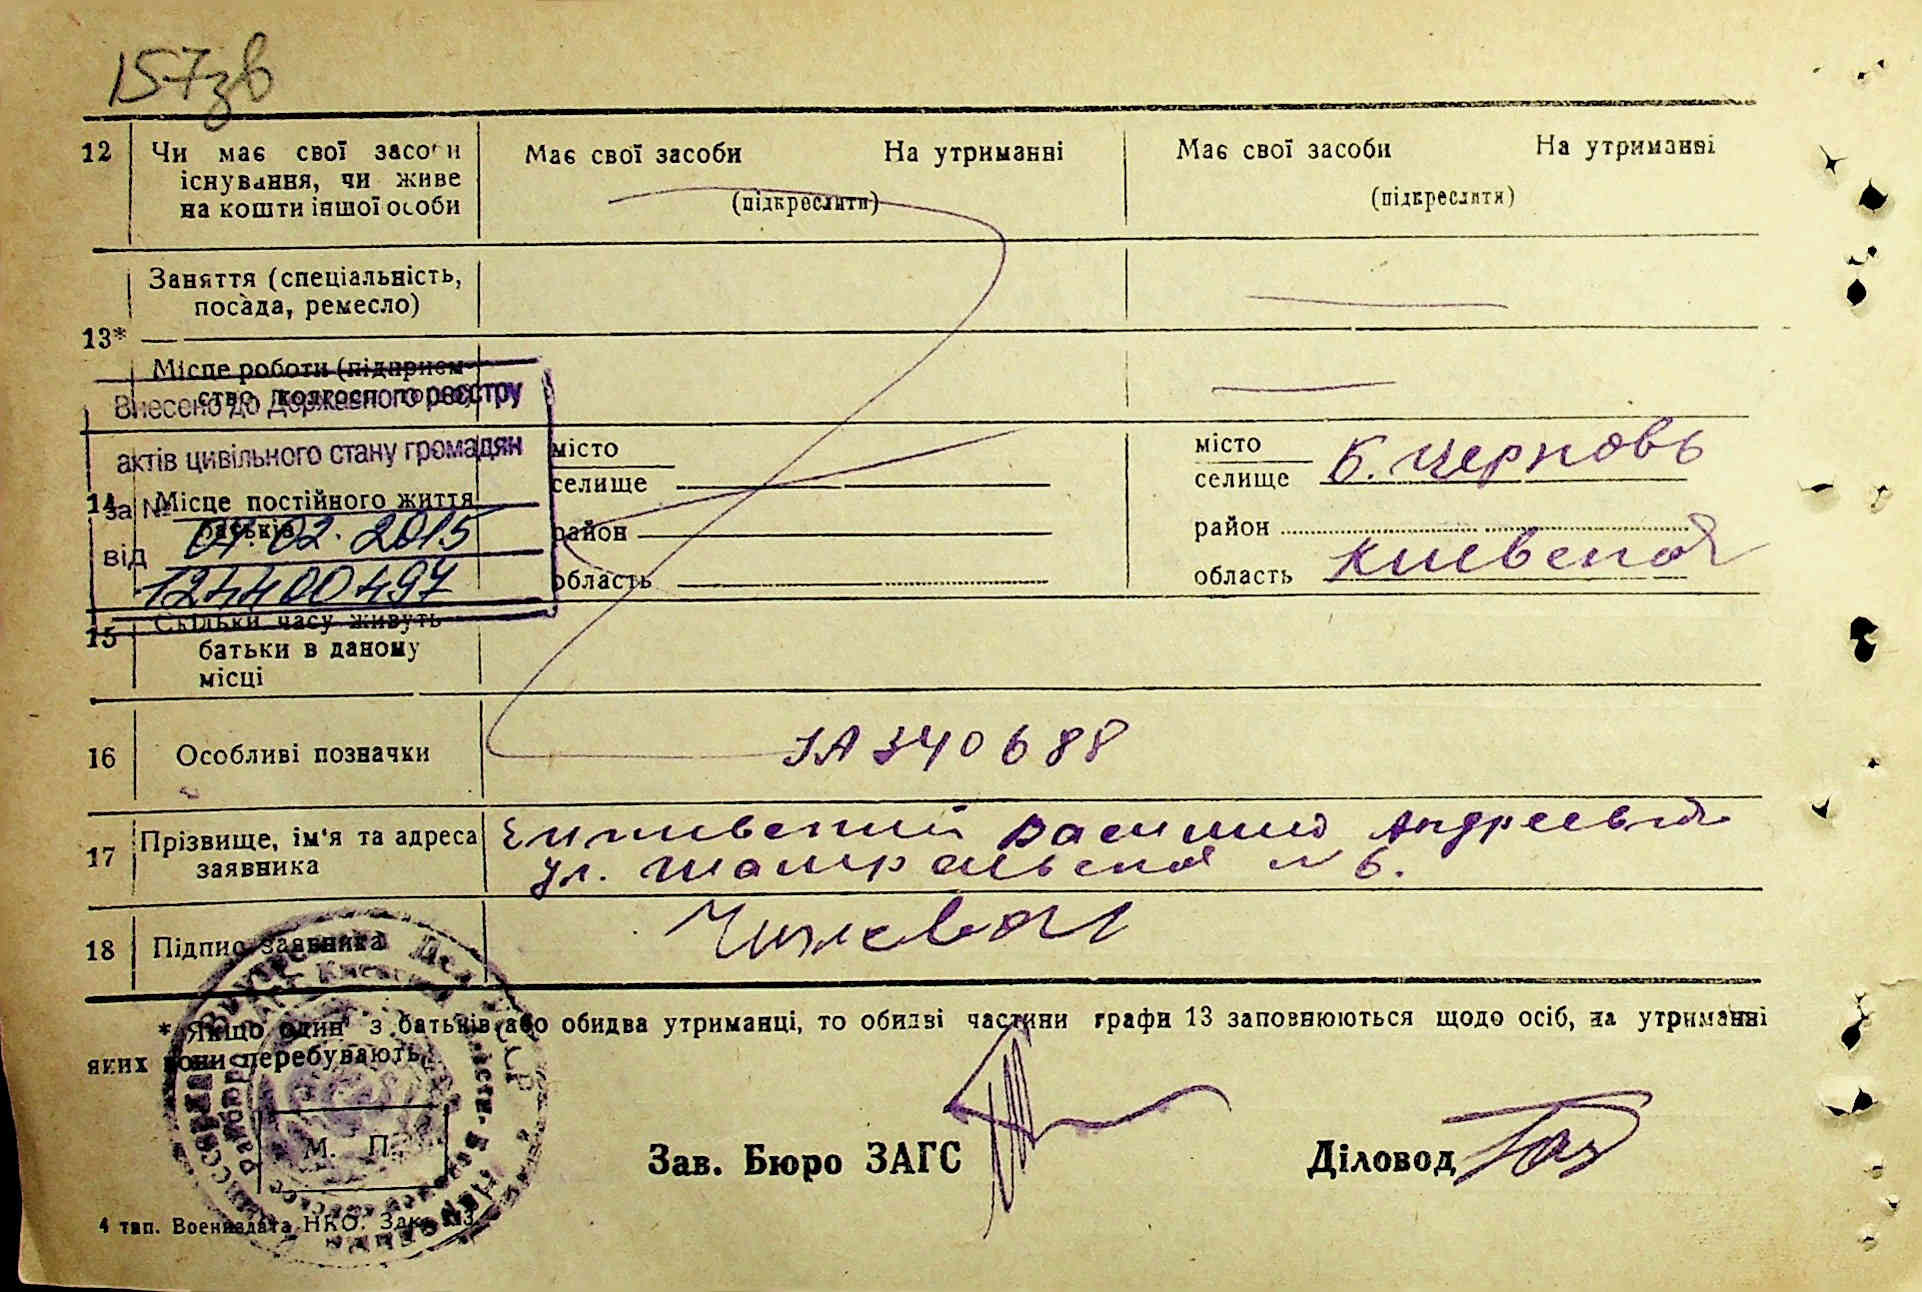 157зв
12 Чи має свої засоби Має свої засоби На утриманні Має свої засоби На утриманні
існування, чи живе
на кошти іншої особи (підкреслити) (підкреслити)
Заняття (спеціальність,
посада, ремесло)
13*
Місце роботи (підприєм-
Внесено до Державного реєстру
актів цивільного стану громадян
місто місто
селище селище Б. Черновь
14 Місце постійного життя
за №
батьків район район
від 04.02.2015
124400497 область область Киевской
15 Скільки часу живуть
батьки в даному
місці
16 Особливі позначки 340688
17 Прізвище, ім'я та адреса Василий Андреевич
заявника ул. № 6.
18 Підпис заявника
* Якщо один з батьків або обидва утриманці, то обидві частини графи 13 заповнюються щодо осіб, на утриманні
яких вони перебувають.
М. П.
Зав. Бюро ЗАГС Діловод
4 тип. Воениздата НКО. Зак.